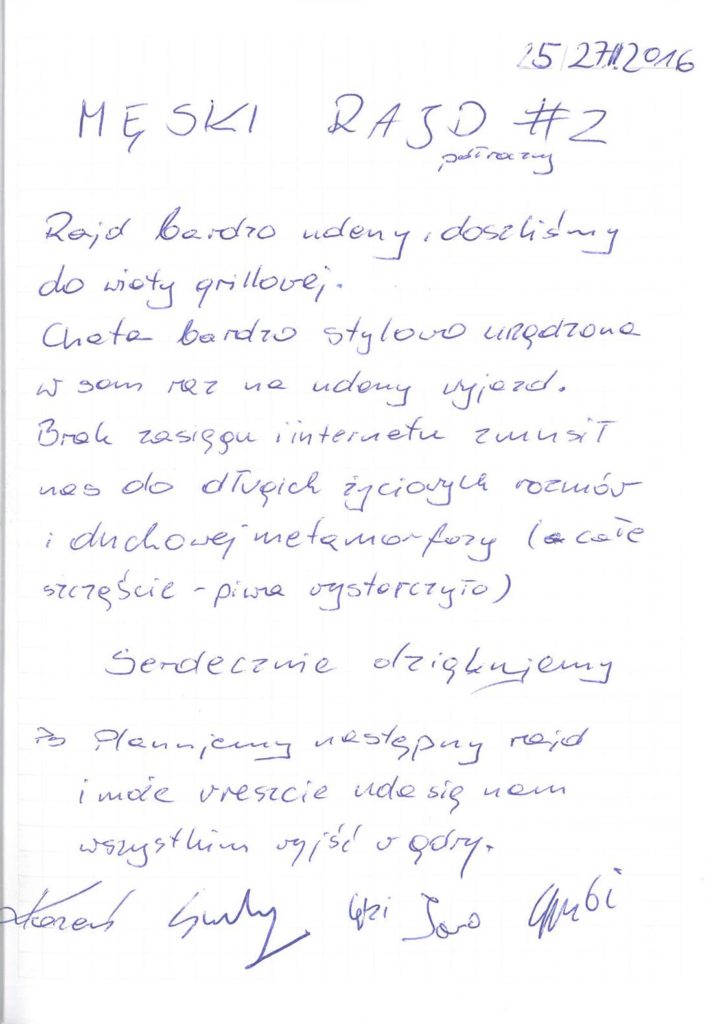 25/27.II.2016
MĘSKI RAJD #2
Rajd bardzo udany, doszliśmy
do wiaty grillowej.
Chata bardzo stylowo urządzona
w sam raz na udany wyjazd.
Brak zasięgu i internetu zmusił
nas do długich życiowych rozmów
i duchowej metamorfozy (a całe
szczęście - piwa wystarczyło)
Serdecznie dziękujemy
PS Planujemy następny rajd
i może wreszcie uda się nam
wszystkim wyjść w góry.
Jaro